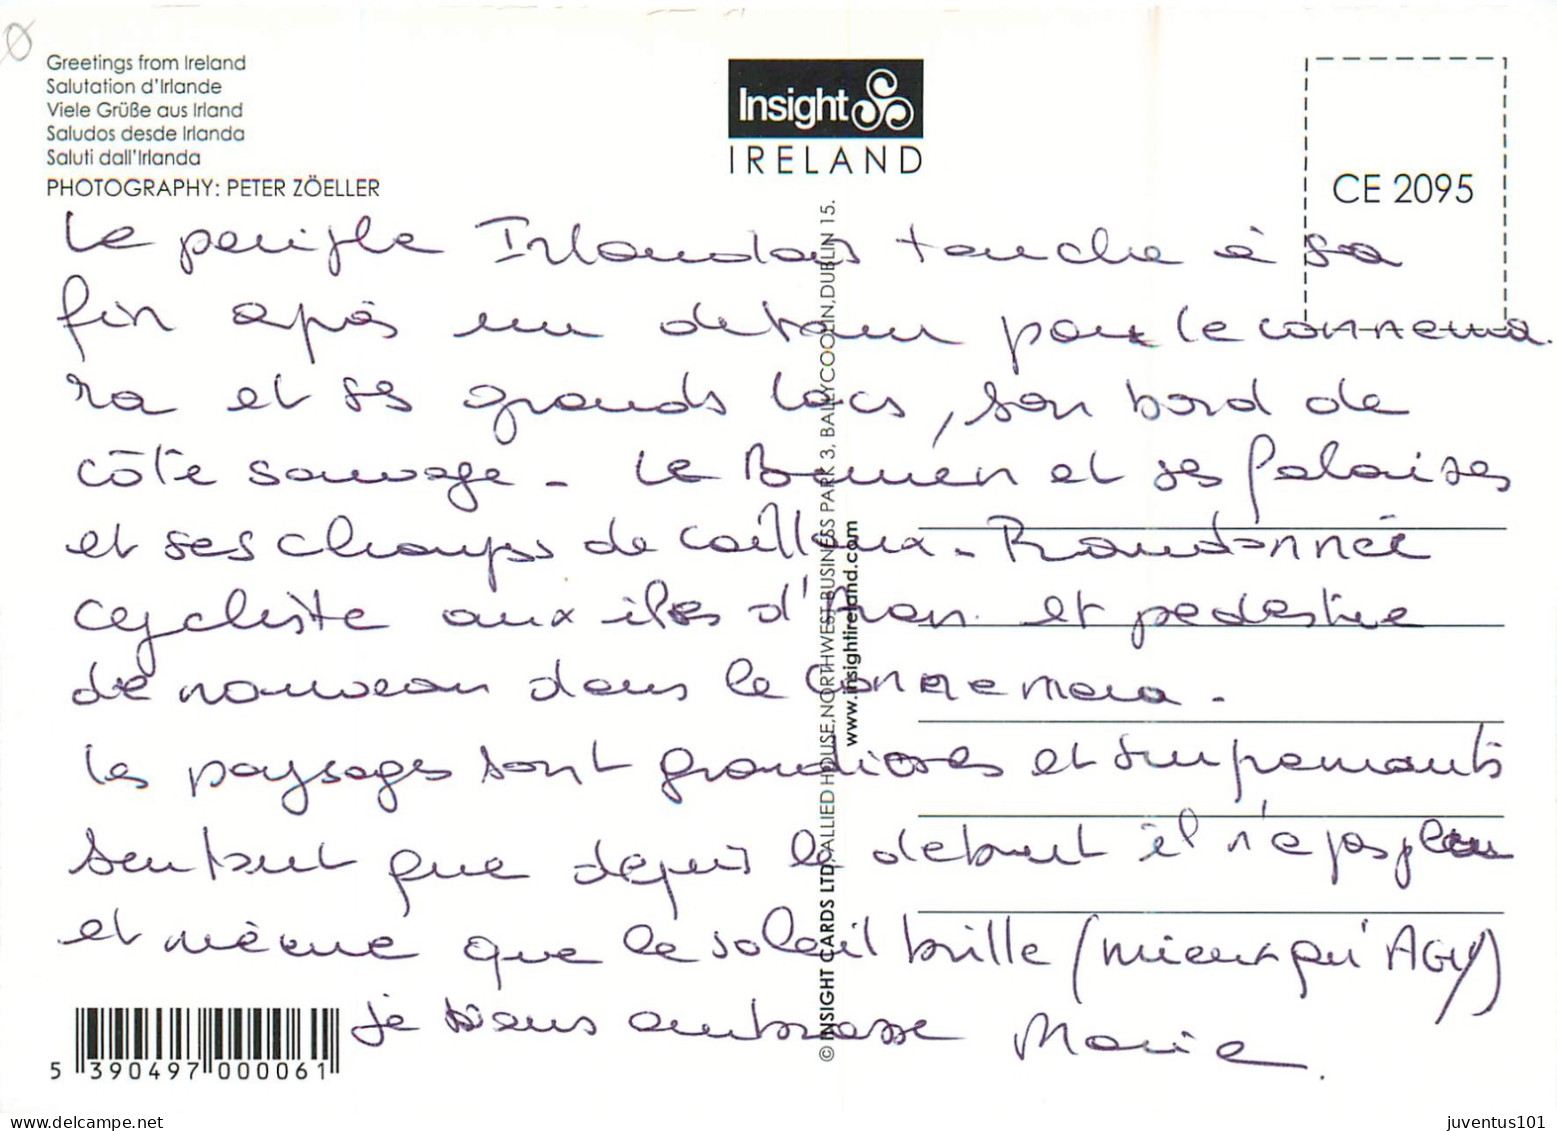 Greetings from Ireland
Salutation d'Irlande
Viele Grüße aus Irland
Saludos desde Irlanda
Saluti dall'Irlanda
PHOTOGRAPHY: PETER ZÖELLER
Insight
IRELAND
CE 2095
Le periple Irlandais touche à sa
fin après un detour pour le connema
ra et ses grands lacs, son bord de
côte sauvage - Le Burren et ses falaises
et ses champs de cailloux - Randonnée
cycliste aux iles d'Aran et pedestre
de nouveau dans le Connemara -
les paysages sont grandioses et surprenants
surtout que depuis le debut il n'a pas plu
et même que le soleil brille (mieux qu'AGY)
je vous embrasse Marie.
© INSIGHT CARDS LTD, ALLIED HOUSE, NORTHWEST BUSINESS PARK 3, BALLYCOOLIN, DUBLIN 15.
www.insightireland.com
5 390497 000061
juventus101